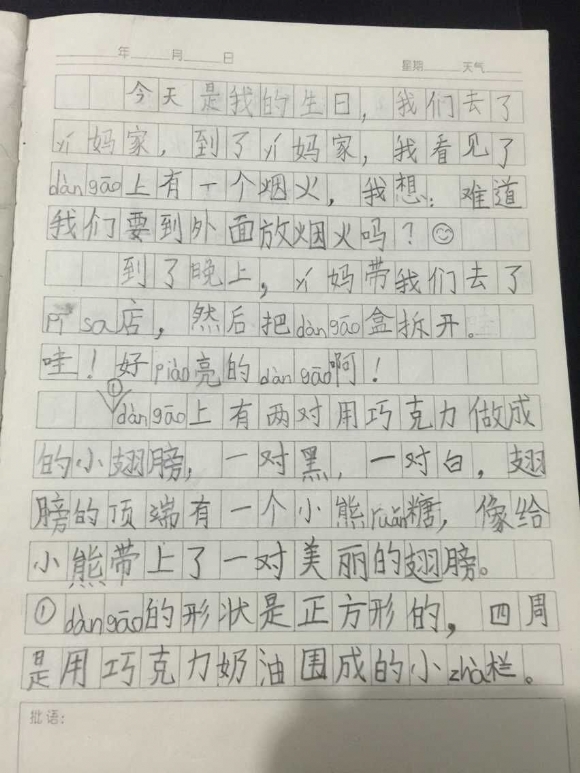 年 月 日 星期 天气
今天是我的生日，我们去了
yí妈家，到了yí妈家，我看见了
dàngāo上有一个烟火，我想：难道
我们要到外面放烟火吗？😊
到了晚上，yí妈带我们去了
pī sà店，然后把dàngāo盒拆开。
哇！好piào亮的dàngāo啊！
①
dàngāo上有两对用巧克力做成
的小翅膀，一对黑，一对白，翅
膀的顶端有一个小熊ruǎn糖，像给
小熊带上了一对美丽的翅膀。
①dàngāo的形状是正方形的，四周
是用巧克力奶油围成的小zhà栏。
批语：